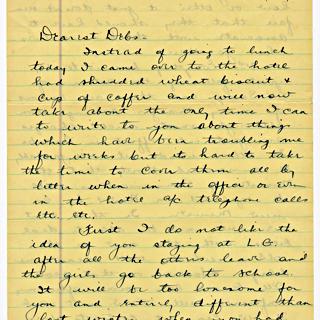 Dearest Debs:-
Instead of going to lunch
today I came over to the hotel
had shredded wheat biscuit &
cup of coffee and will now
take about the only time I can
to write to you about things
which have been troubling me
for weeks but its hard to take
the time to cover them all by
letter when in the office or even
in the hotel a/c telephone calls
etc. etc.
First I do not like the
idea of you staying at L.G.
after all the others leave and
the girls go back to school.
It will be too lonesome for
you and entirely different than
last winter when you had